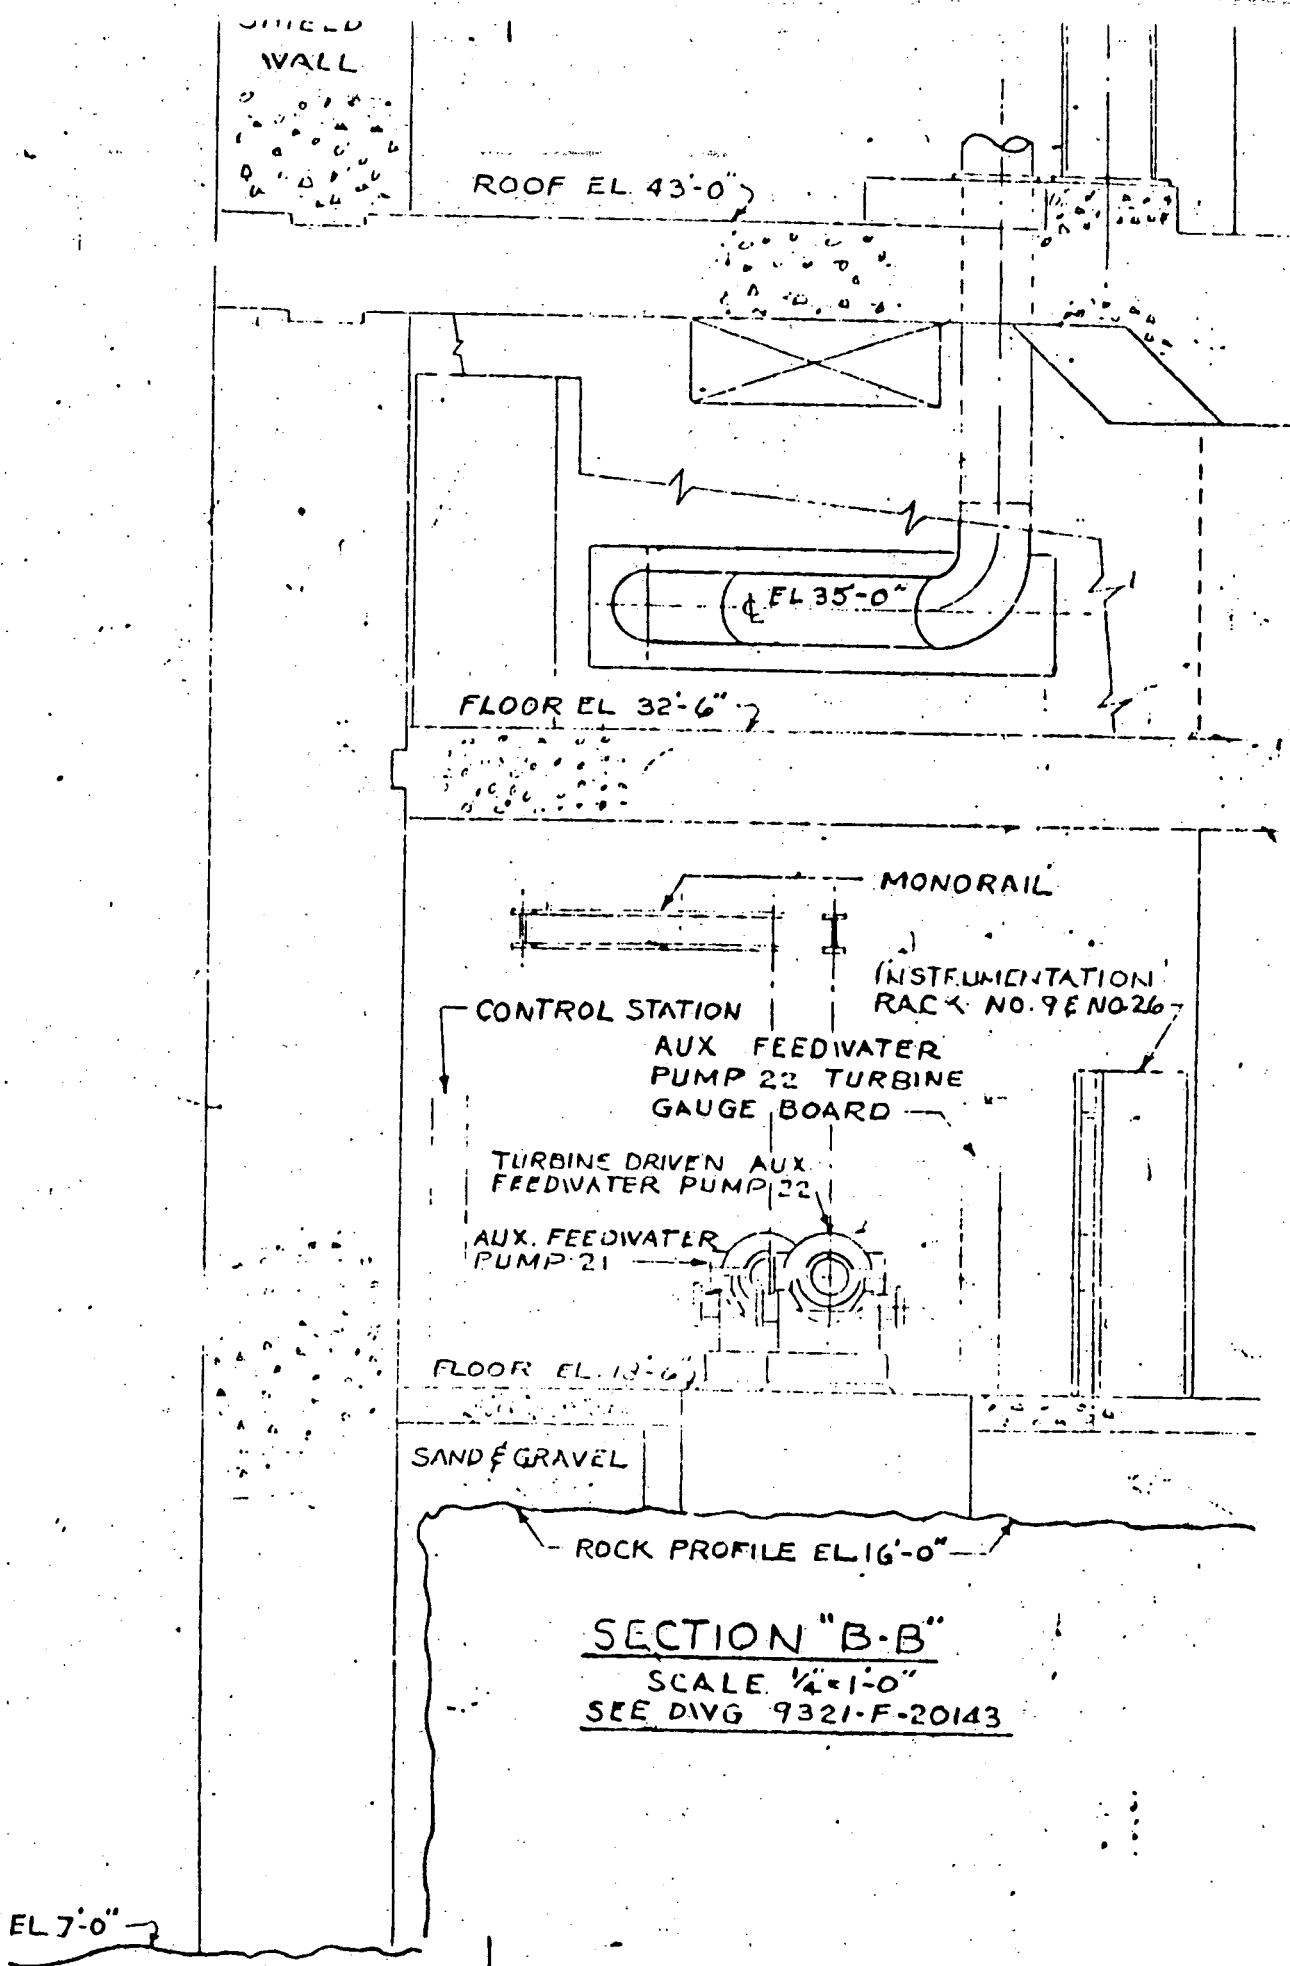 SHIELD
WALL
ROOF EL. 43'-0"
℄ EL 35'-0"
FLOOR EL 32'-6"
MONORAIL
INSTRUMENTATION
RACK NO. 9 & NO 26
CONTROL STATION
AUX FEEDWATER
PUMP 22 TURBINE
GAUGE BOARD
TURBINE DRIVEN AUX.
FEEDWATER PUMP 22
AUX. FEEDWATER
PUMP 21
FLOOR EL. 18'-6"
SAND & GRAVEL
ROCK PROFILE EL 16'-0"
SECTION "B-B"
SCALE. 1/4"=1'-0"
SEE DWG 9321-F-20143
EL 7'-0"